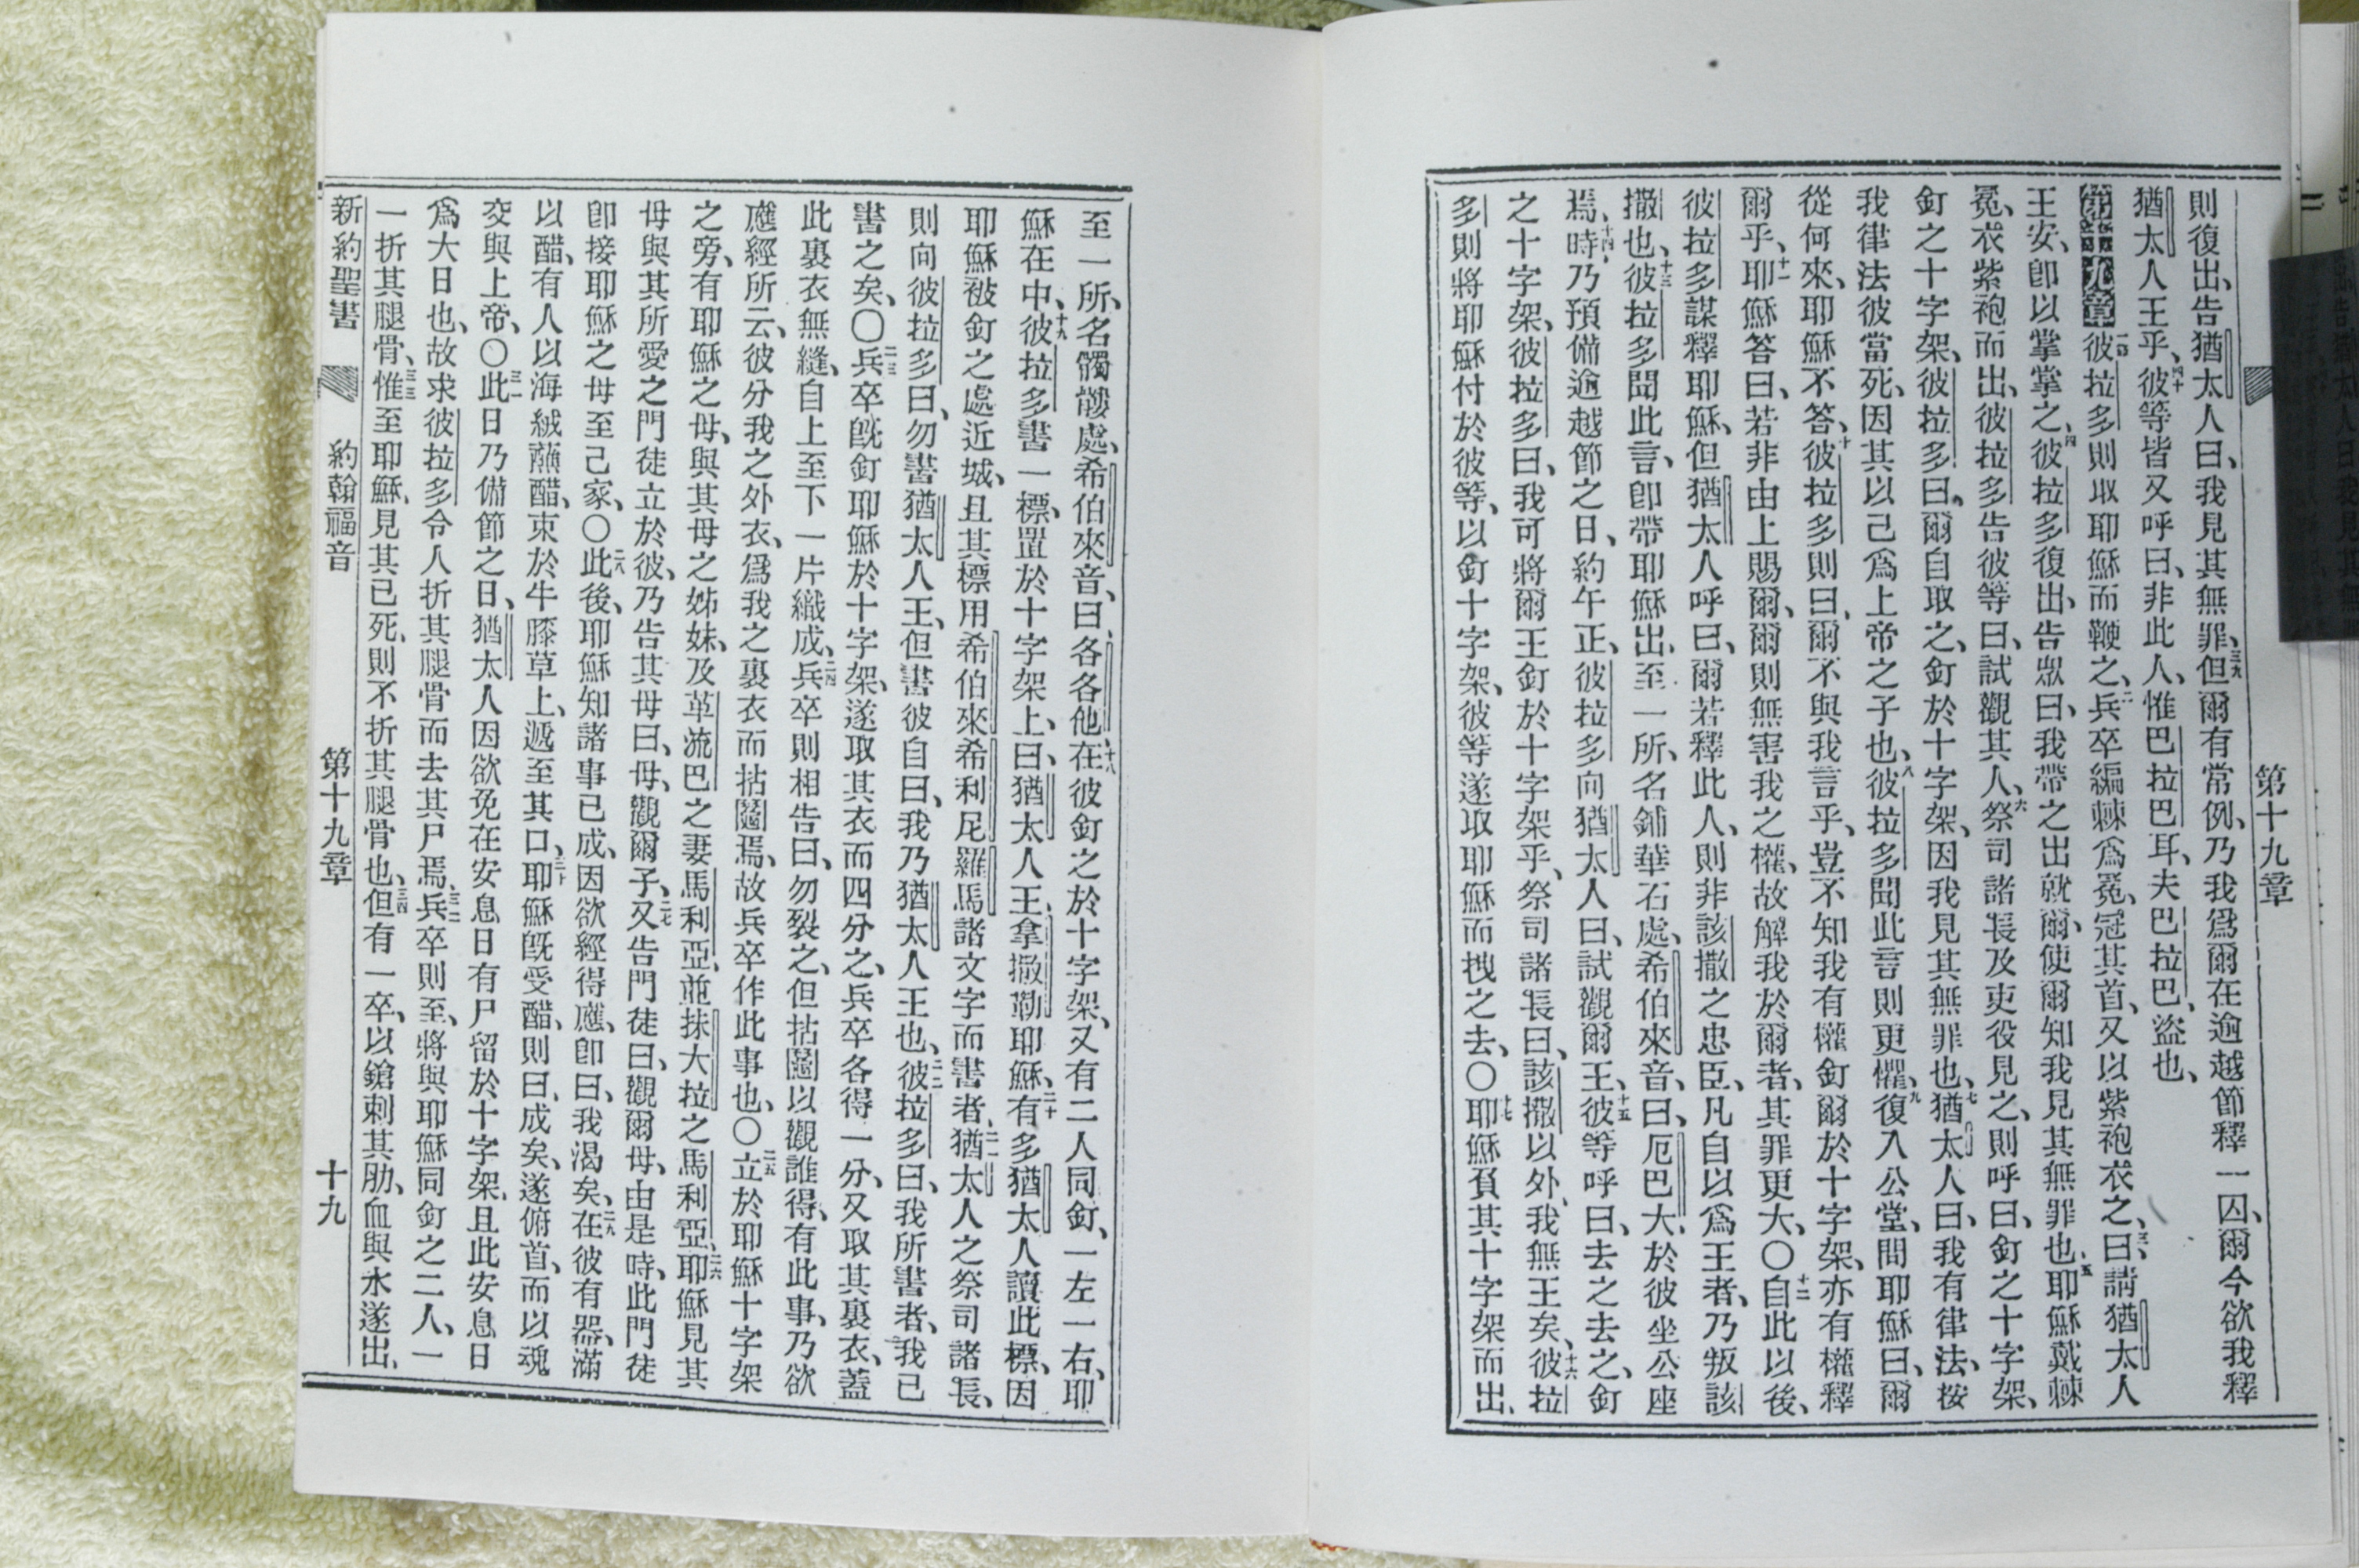 第十九章
則復出、告猶太人曰、我見其無罪、三九但爾有常例、乃我爲爾在逾越節釋一囚、爾今欲我釋
猶太人王乎、四十彼等皆又呼曰、非此人、惟巴拉巴耳、夫巴拉巴、盜也、
第十九章 一彼拉多則取耶穌而鞭之、二兵卒編棘爲冕、冠其首、又以紫袍衣之、三曰、請猶太人
王安、卽以掌掌之、四彼拉多復出、告眾曰、我帶之出就爾、使爾知我見其無罪也、五耶穌戴棘
冕、衣紫袍而出、彼拉多告彼等曰、試觀其人、六祭司諸長及吏役見之、則呼曰、釘之十字架、
釘之十字架、彼拉多曰、爾自取之、釘於十字架、因我見其無罪也、七猶太人曰、我有律法、按
我律法彼當死、因其以己爲上帝之子也、八彼拉多聞此言則更懼、九復入公堂、問耶穌曰、爾
從何來、耶穌不答、十彼拉多則曰、爾不與我言乎、豈不知我有權釘爾於十字架、亦有權釋
爾乎、十一耶穌答曰、若非由上賜爾、爾則無害我之權、故解我於爾者、其罪更大、〇十二自此以後、
彼拉多謀釋耶穌、但猶太人呼曰、爾若釋此人、則非該撒之忠臣、凡自以爲王者、乃叛該
撒也、十三彼拉多聞此言、卽帶耶穌出、至一所、名鋪華石處、希伯來音、曰、厄巴大、於彼坐公座
焉、十四時乃預備逾越節之日、約午正、彼拉多向猶太人曰、試觀爾王、十五彼等呼曰、去之去之、釘
之十字架、彼拉多曰、我可將爾王釘於十字架乎、祭司諸長曰、該撒以外、我無王矣、十六彼拉
多則將耶穌付於彼等、以釘十字架、彼等遂取耶穌而拽之去、〇十七耶穌負其十字架而出、
至一所、名髑髏處、希伯來音、曰各各他、十八在彼釘之於十字架、又有二人同釘、一左一右、耶
穌在中、十九彼拉多書一標、置於十字架上、曰、猶太人王拿撒勒耶穌、二十有多猶太人讀此標、因
耶穌被釘之處近城、且其標用希伯來希利尼羅馬諸文字而書者、二一猶太人之祭司諸長、
則向彼拉多曰、勿書猶太人王、但書彼自曰、我乃猶太人王也、二二彼拉多曰、我所書者、我已
書之矣、〇二三兵卒旣釘耶穌於十字架、遂取其衣而四分之、兵卒各得一分、又取其裏衣、蓋
此裏衣無縫、自上至下一片織成、二四兵卒則相告曰、勿裂之、但拈鬮以觀誰得、有此事、乃欲
應經所云、彼分我之外衣、爲我之裏衣而拈鬮焉、故兵卒作此事也、〇二五立於耶穌十字架
之旁、有耶穌之母、與其母之姊妹、及革流巴之妻馬利亞、並抹大拉之馬利亞、二六耶穌見其
母與其所愛之門徒立於彼、乃告其母曰、母、觀爾子、二七又告門徒曰、觀爾母、由是時、此門徒
卽接耶穌之母至己家、〇二八此後、耶穌知諸事已成、因欲經得應、卽曰、我渴矣、二九在彼有器、滿
以醋、有人以海絨蘸醋、束於牛膝草上、遞至其口、三十耶穌旣受醋、則曰、成矣、遂俯首、而以魂
交與上帝、〇三一此日乃備節之日、猶太人因欲免在安息日有尸留於十字架、且此安息日
爲大日也、故求彼拉多令人折其腿骨而去其尸焉、三二兵卒則至、將與耶穌同釘之二人、一
一折其腿骨、三三惟至耶穌、見其已死、則不折其腿骨也、三四但有一卒、以鎗刺其肋、血與水遂出、
新約聖書 約翰福音 第十九章 十九